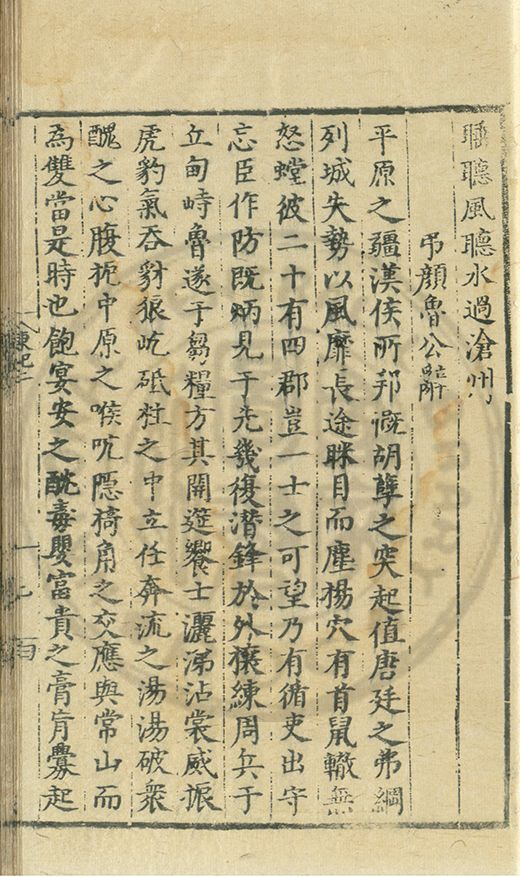 聽風聽水過滄州
弔顔魯公辭
平原之疆漢侯所邦慨胡孽之突起值唐廷之弗綱
列城失勢以風靡長途眯目而塵揚穴有首鼠轍無
怒螳彼二十有四郡豈一士之可望乃有循吏出守
忘臣作防既炳見于先幾復潛鋒於外禳練周兵于
丘甸峙魯遂于芻糧方其開筵饗士灑涕沾裳威振
虎豹氣吞豺狼屹砥柱之中立任奔流之湯湯破衆
醜之心腹扼中原之喉吭隱犄角之交應與常山而
為雙當是時也飽宴安之酖毒嬰富貴之膏肓釁起